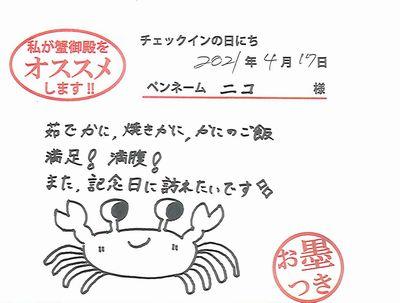 私が蟹御殿を
オススメ
します!!
チェックインの日にち
2021年4月17日
ペンネーム ニコ 様
茹でかに,焼きかに,かにのご飯
満足!満腹!
また,記念日に訪れたいです!!
お墨
つき